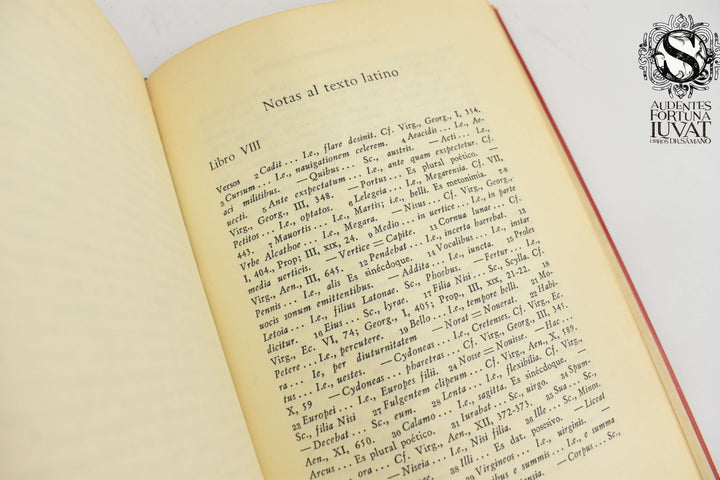 Notas al texto latino
Libro VIII
Versos 2 Cadit... I.e., flare desinit. Cf. Virg., Georg., I, 354.
3 Cursum... I.e., nauigationem celerem. 4 Aeacidis... I.e., Ae-
aci militibus. —Quibus... Sc., austris. —Acti... I.e.,
uecti. 5 Ante exspectatum... I.e., ante quam exspectetur. Cf.
Virg., Georg., III, 348. —Portus... Es plural poético. —
Petitos... I.e., optatos. 6 Lelegeia... I.e., Megarenia. Cf. VII,
443. 7 Mauortis... I.e., Martis; i.e., belli. Es metonimia. —
Vrbe Alcathoe... I.e., Megara. —Nisus... Cf. Virg., Georg.,
I, 404., Prop; III, XIX, 24. 9 Medio... in uertice... I.e., in parte
media uerticis. —Vertice = Capite. 11 Cornua lunae... Cf.
Virg., Aen., III, 645. 12 Pendebat... I.e., incerta haerebat. 13
Pennis... I.e., alis Es sinécdoque. 14 Vocalibus... I.e., instar
uocis sonum emittentibus. —Addita... I.e., iuncta. 15 Proles
Letoia... I.e., filius Latonae. Sc., Phoebus. —Fertur... I.e.,
dicitur. 16 Eius... Sc., lyrae. 17 Filia Nisi... Sc., Scylla. Cf.
Virg., Ec. VI, 74; Georg., I, 405; Prop., III, XIX, 21-22. 18
Petere... I.e., percutere. 19 Bello... I.e., tempore belli. 21 Mo-
ra... Ie, per diuturnitatem —Norat = Nouerat. 22 Habi-
tus... I.e., uestes. —Cydoneas... I.e., Cretenses. Cf. Virg., Ec.
X, 59 —Cydoneas pharetras... Cf. Virg., Georg., III, 345.
23 Europei... I.e., Europes filii. 24 Nosse = Nouisse. —Hac...
Sc., filia Nisi 27 Fulgentem clipeum... Cf. Virg., Aen., X, 589.
—Decebat... Sc., eum. 28 Lenta... I.e., flexibilia. Cf. Virg.,
Aen., XI, 650. 30 Calamo... I.e., sagitta. Es sinécdoque. —
Arcus... Es plural poético. 31 Iurabat... Sc., uirgo. 33 Spum-
ora... Cf. Virg., Aen., XII, 372-373. 35 Sua... Sc.,
—Niseia... I.e., Nisi filia. 36 Ille... Sc., Minos.
38 Illi... Es dat. posesivo. —Liceat
39 Virgineos... I.e., uirginis. —
ibus e summis... I.e., e summa
—Corpus... Sc.,
AUDENTES
FORTUNA
IUVAT
LIBROS DR. SÁMANO
S